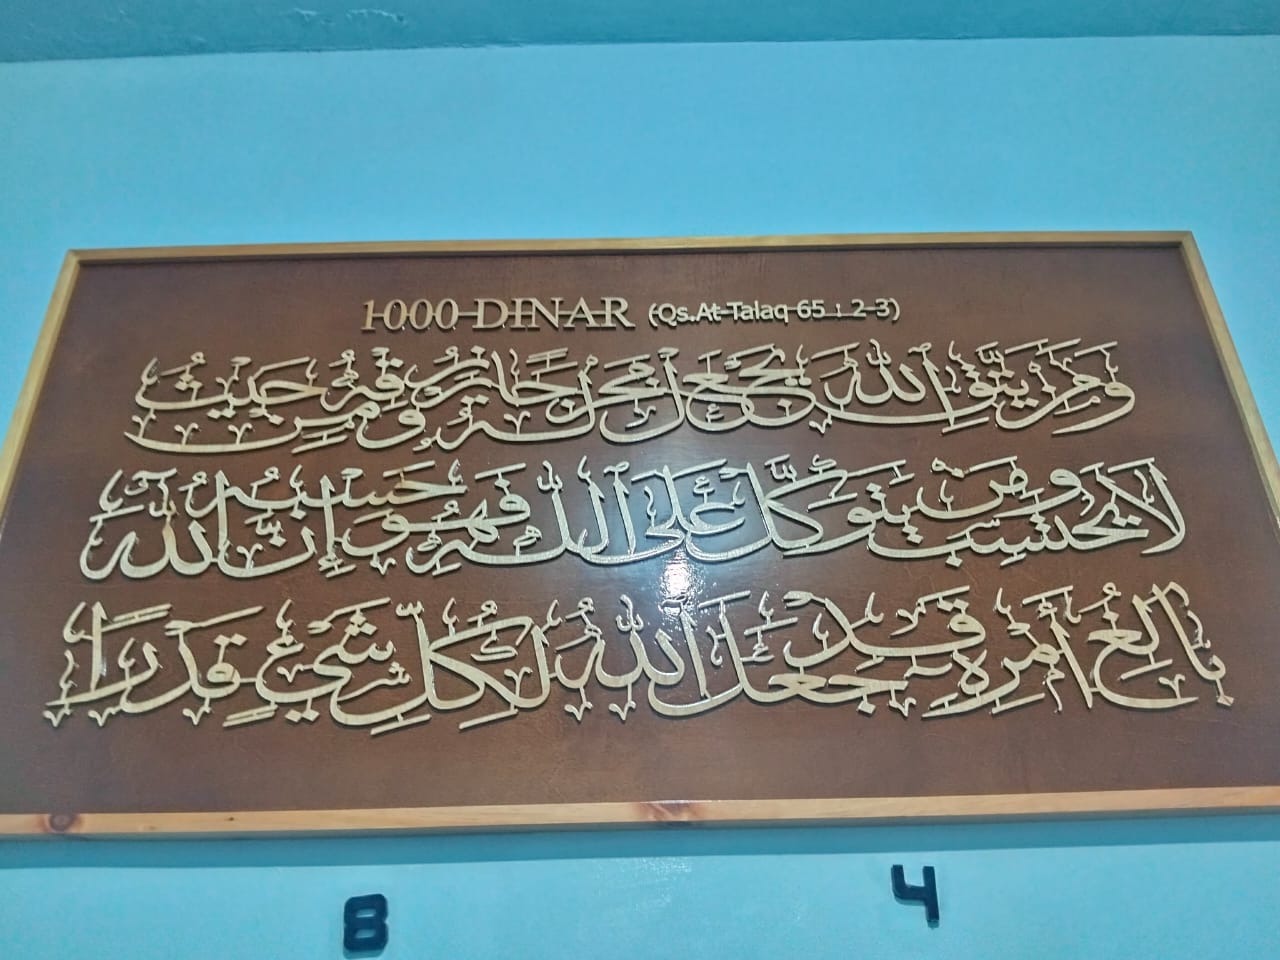 1000 DINAR (Qs.At-Talaq 65 : 2-3)
وَمَنْ يَتَّقِ اللَّهَ يَجْعَلْ لَهُ مَخْرَجًا وَيَرْزُقْهُ مِنْ حَيْثُ
لَا يَحْتَسِبُ وَمَنْ يَتَوَكَّلْ عَلَى اللَّهِ فَهُوَ حَسْبُهُ إِنَّ اللَّهَ
بَالِغُ أَمْرِهِ قَدْ جَعَلَ اللَّهُ لِكُلِّ شَيْءٍ قَدْرًا
8 4